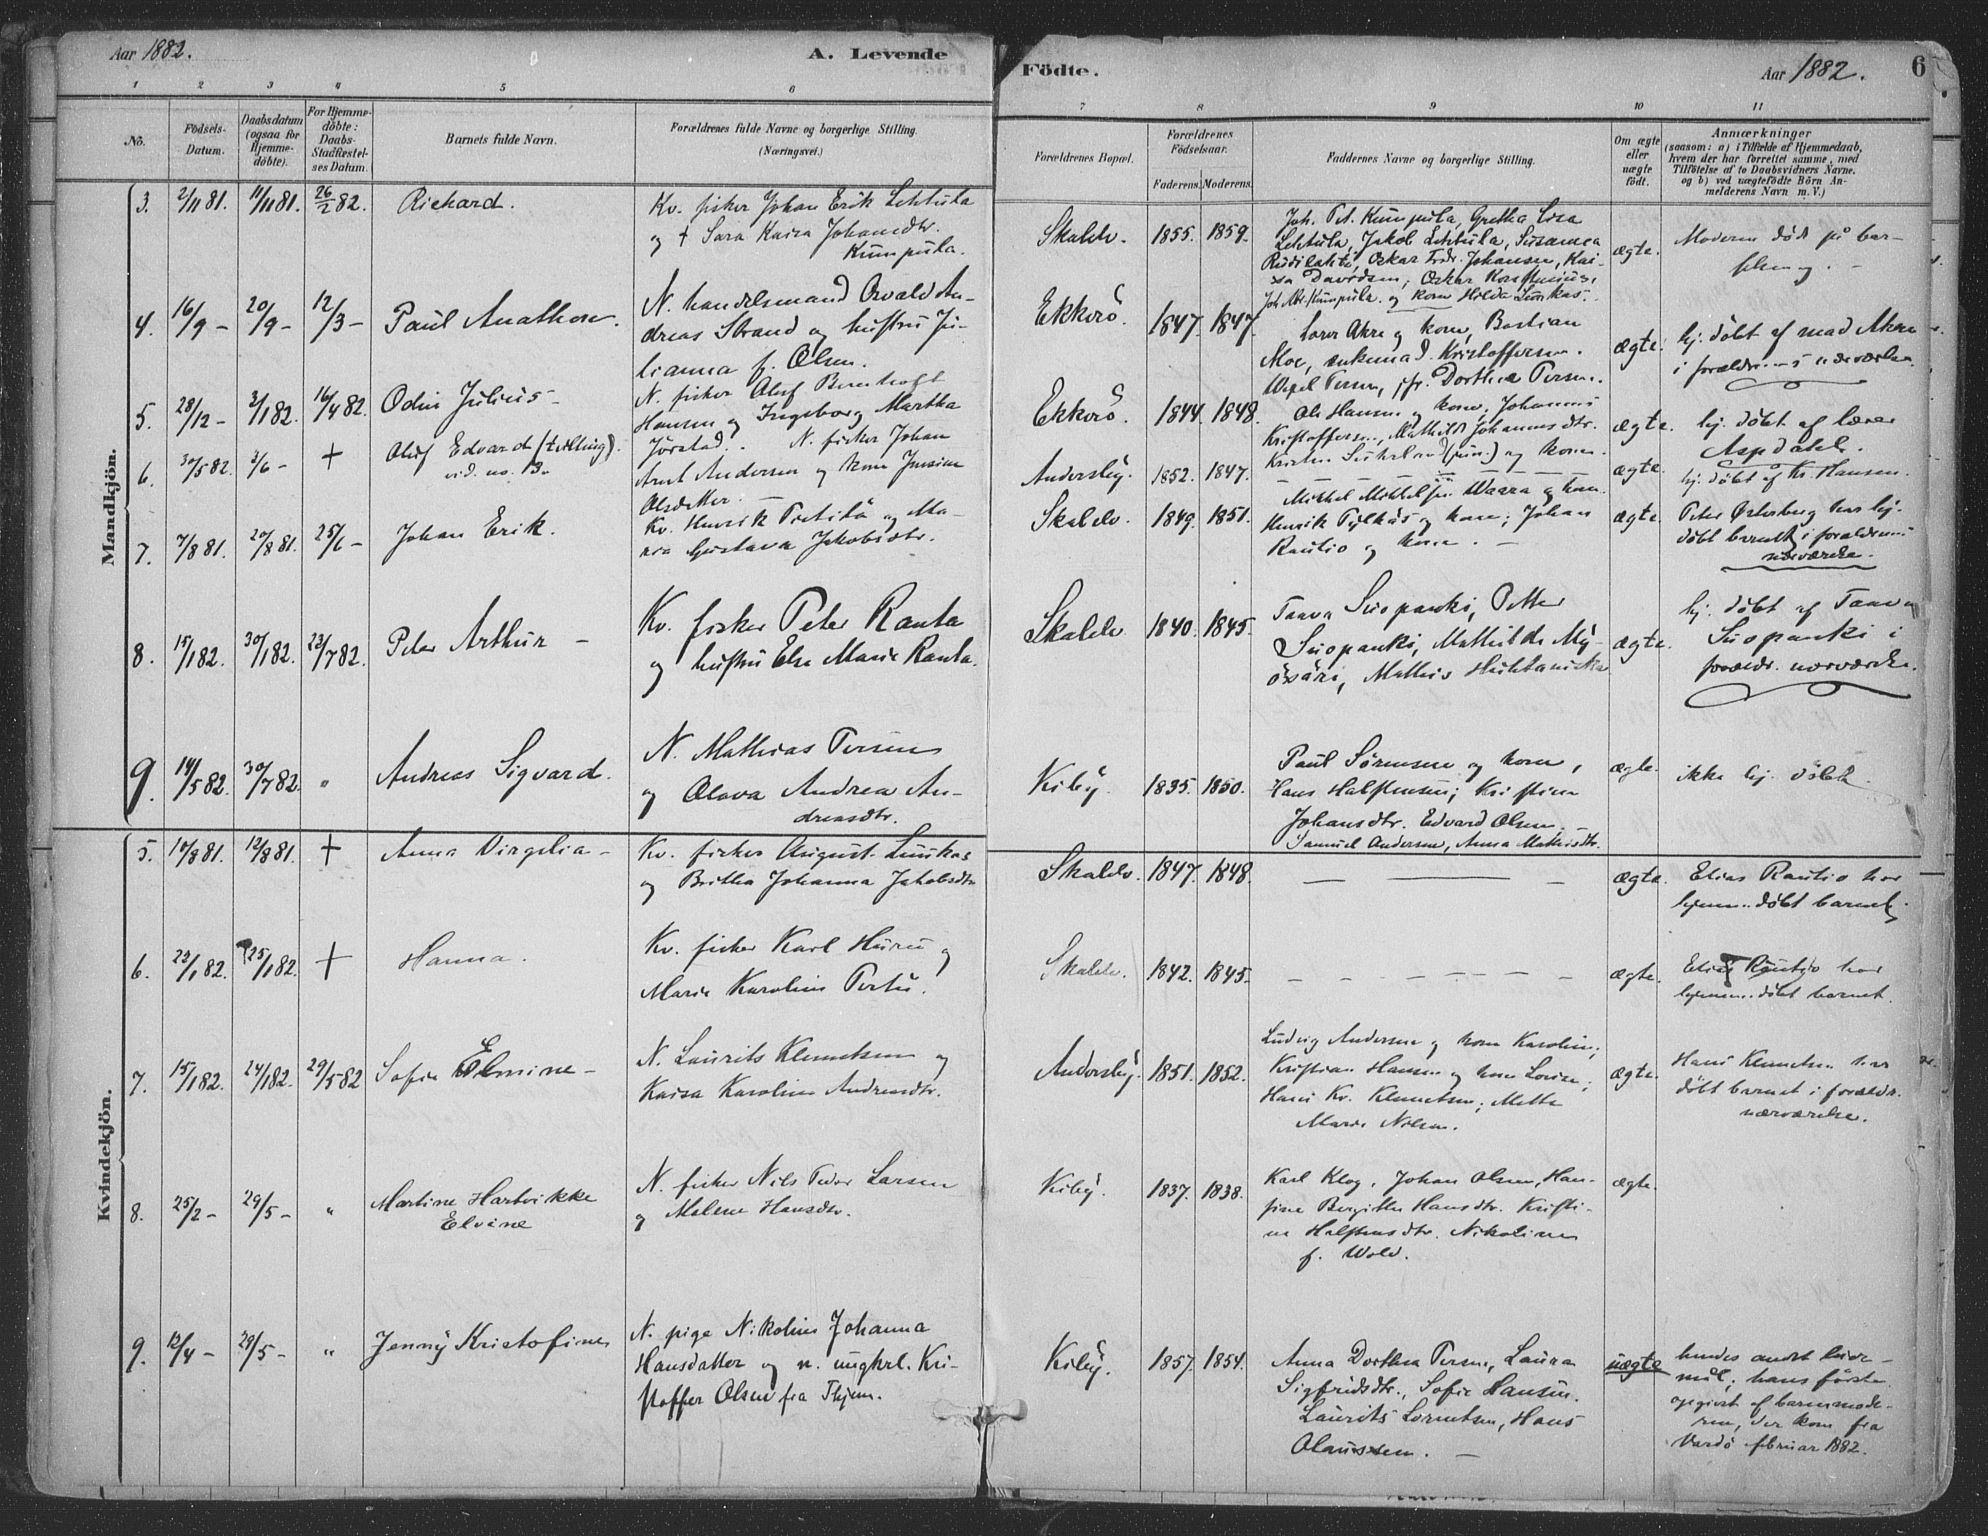 Aar 1882.
A. Levende
Födte.
Aar 1882.
6
1 2 3 4 5 6 7 8 9 10 11
No.
Födsels-Datum.
Daabsdatum (ogsaa for Hjemme-döbte).
For Hjemme-döbte: Daabs-Stadfæstel-ses Datum.
Barnets fulde Navn.
Forældrenes fulde Navne og borgerlige Stilling.
(Næringsvei.)
Forældrenes Bopæl.
Forældrenes Födselsaar.
Faderens. Moderens.
Faddernes Navne og borgerlige Stilling.
Om ægte eller uægte födt.
Anmærkninger
(saasom: a) i Tilfælde af Hjemmedaab,
hvem der har forrettet samme, med
Tilföielse af to Daabsvidners Navne.
og b) ved uægtefödte Börn An-
melderens Navn m. V.)
Mandkjön.
3. 2/11 81. 11/11 81. 26/2 82. Richard.
Kv. fisker Johan Erik Lehtula
og + Sara Kaisa Johansdtr.
Kumpula.
Skalelv. 1855. 1859.
Joh. Pet. Kumpula, Gretha Lisa
Lehtula, Jakob Lehtula, Susanna
Oskar Fredr. Johansen, Kai-
sa Davidsen, Oskar
Joh. Abr. Kumpula og kone Hilda
ægte.
Moderen död på bar-
selseng. -
4. 16/9 - 20/9 - 12/3 - Paul Anathon.
N. handelsmand Osvald An-
dreas Strand og hustru Ju-
lianna f. Olsen.
Ekkerö. 1847. 1847.
Lærer Akre og kone, Bastian
Moe, enkemad. Kristoffersen.
Persen, jfr. Dorthea Persen.
ægte.
hj. döbt af mad Akre
i forældrenes nærværelse.
5. 28/12 - 2/1 82. 16/4 82. Odin Julius -
N. fisker Oluf Bernhoft
Hansen og Ingeborg Martha
Jörstad.
Ekkerö. 1844. 1848.
Ole Hansen og kone, Johannes
Kristoffersen, Mathilde Johannesdtr.
ægte.
hj. döbt af lærer
Aspdahl.
6. 30/5 82. 3/6 - + Oluf Edvard (tvilling).
vid. no. 13.
N. fisker Johan
Arnt Andersen og kone Jensine
Olsdatter.
Andersby. 1852. 1847.
Kristen (jun.) og kone.
ægte.
hj. döbt af Kr. Hansen.
7. 7/8 81. 20/8 81. 25/6 - Johan Erik.
Kv. Henrik og Ma-
ria Gustava Jakobsdtr.
Skalelv. 1849. 1851.
Mikkel Waara og kone
Henrik Pylkäs og kone; Johan
Rautio og kone. -
ægte.
Peter Østerberg har hj.
döbt barnet i forældrenes
nærværelse.
8. 15/1 82. 30/1 82. 23/7 82. Peter Arthur -
Kv. fisker Peter Ranta
og hustru Else Marie Ranta.
Skalelv 1840. 1845.
Taava Suopanki, Petter
Suopanki, Mathilde My-
ösäri, Mathis
ægte.
hj. döbt af Taava
Suopanki i
forældr. nærværelse.
9. 14/5 82. 30/7 82. " Andreas Sigvard.
N. Mathias Persen
og Olava Andrea An-
dreasdtr.
Kiby. 1835. 1850.
Paul Sørensen og kone,
Hans Halftensen; Kristine
Johansdtr. Edvard Olsen.
Samuel Andersen, Anna Mathisdtr.
ægte.
ikke hj. döbt.
Kvindekjön.
5. 10/8 81. 12/8 81. + Anna Virgelia -
Kv. fisker August Luukas
og Britha Johanna Jakobsdtr
Skalelv. 1847. 1848. — — —
ægte.
Elias Rautio har
hjemmedöbt barnet.
6. 23/1 82. 25/1 82. + Hanna.
Kv. fisker Karl Huru og
Maria Karolina Perttu.
Skalelv. 1842. 1845. - - - - - -
ægte.
Elias Rautio har
hjemmedöbt barnet.
7. 15/1 82. 24/1 82. 29/5 82 Sofie Elmine -
N. Laurits Klemetsen og
Kaisa Karolina Andreasdtr.
Andersby. 1851. 1852.
Ludvig Andersen og kone Karoline;
Kristian Hansen og kone Lovise;
Hans Kr. Klemetsen; Mette
Marie Nilsen.
ægte.
Hans Klemetsen har
döbt barnet i forældr.
nærværelse.
8. 25/2 - 29/5 - " Martine Hartvikke
Elvine
N. fisker Nils Peder Larsen
og Malene Hansdtr.
Kiby. 1837. 1838.
Karl Klog, Johan Olsen, Han-
sine Bergitte Hansdtr. Kristi-
ne Halftensdtr. Nikoline
f. Wold.
ægte.
9. 12/4 - 29/5 - " Jenny Kristofine
N. pige Nikoline Johanna
Hansdatter og n. ungkrl. Kri-
stoffer Olsen fra Thjem.
Kiby. 1857. 1854.
Anna Dorthea Persen, Laura
Sigfridsdtr., Sofie Hansen.
Laurits Lorentsen, Hans
Olaussen. -
uægte
hendes andet leier-
mål; hans förste
opgivet af barnemode-
ren, der kom fra
Vardö februar 1882.